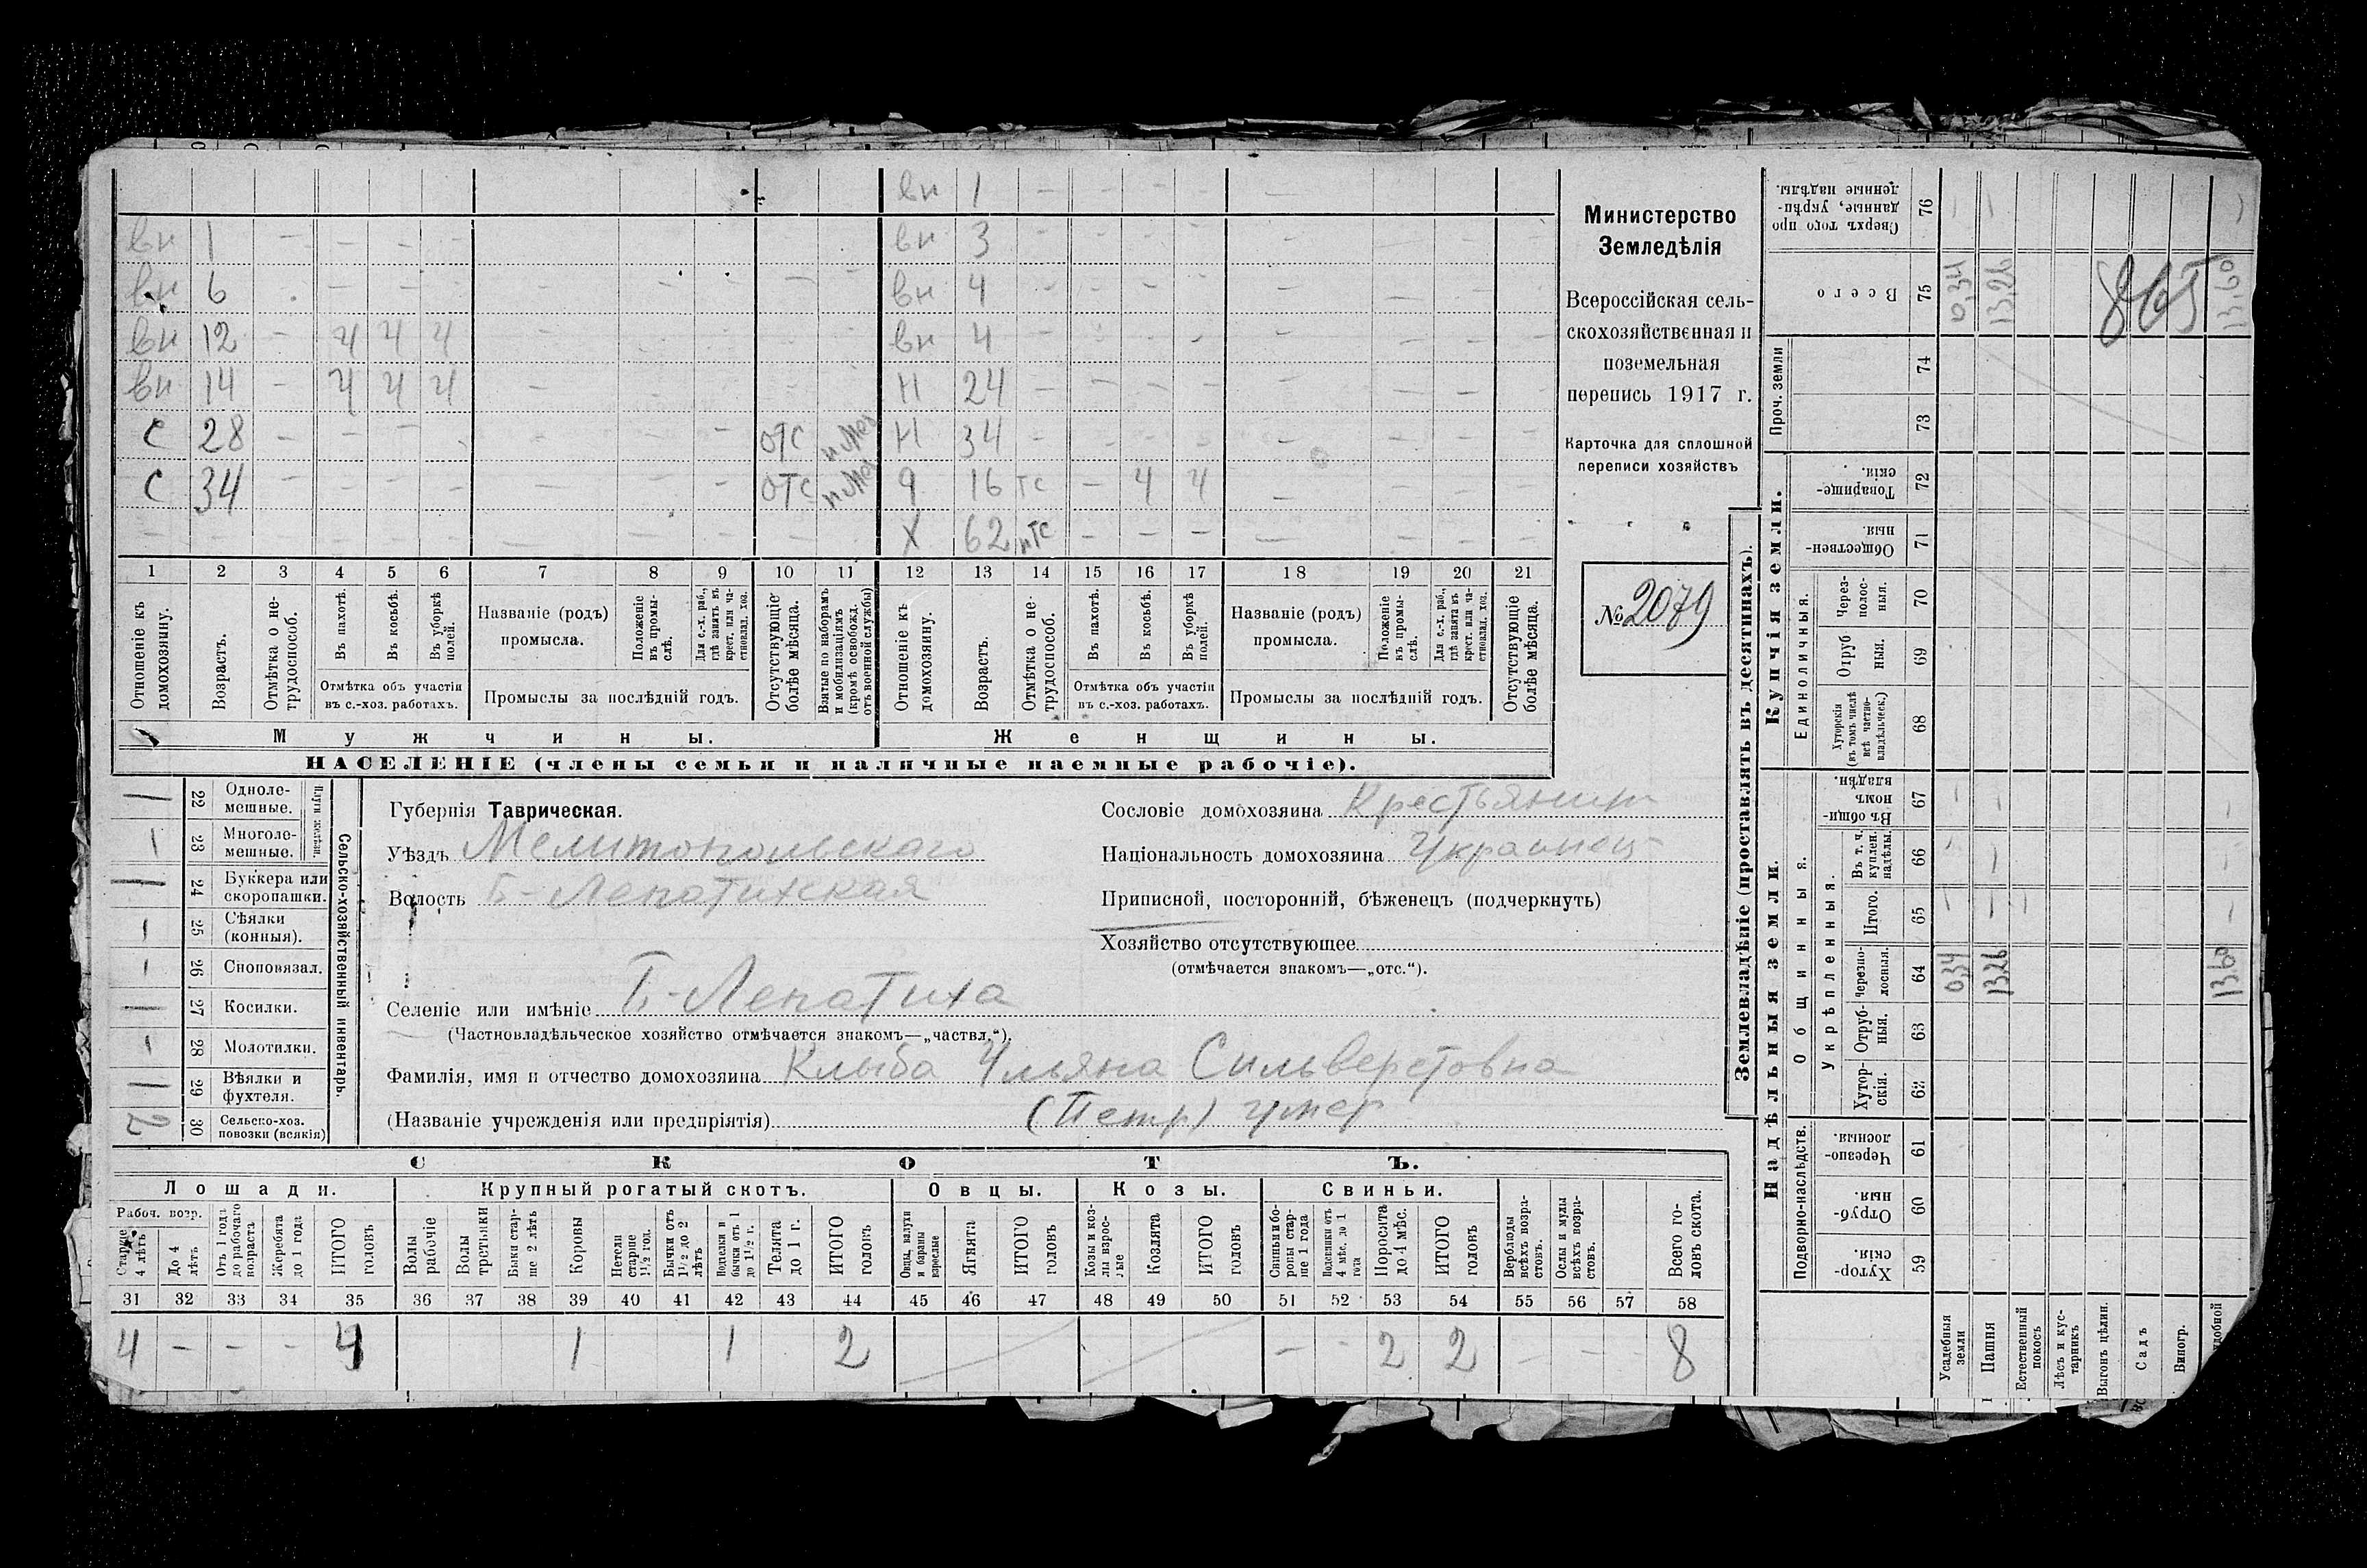 вн 1 - - - - -
вн 1 - - - - - вн 3 - - - - - - - -
вн 6 - - - - - - - - вн 4 - - - - - - -
вн 12 - ч ч ч - - - - вн 4 - - - - - -
вн 14 - ч ч ч - - - Н 24 - - - - - - - -
с 28 - - - - - - - отс Н 34 - - - - - - - -
с 34 - - - - - - - отс 16 тс - ч ч - - - -
Х 62 нтс - - - - - - - -
1 2 3 4 5 6 7 8 9 10 11 12 13 14 15 16 17 18 19 20 21
Отношеніе къ домохозяину.
Возрастъ.
Отмѣтка о нетрудоспособ.
Въ пахотѣ.
Въ косьбѣ.
Въ уборкѣ полей.
Отмѣтка объ участіи
въ с.-хоз. работахъ.
Названіе (родъ)
промысла.
Положеніе въ промыслѣ.
Для с.-х. раб., гдѣ занятъ въ крест. или частновлад. хоз.
Промыслы за послѣдній годъ.
Отсутствующіе болѣе мѣсяца.
Взятые по наборамъ и мобилизаціямъ (кромѣ освобожд. отъ военной службы)
Отношеніе къ домохозяину.
Возрастъ.
Отмѣтка о нетрудоспособ.
Въ пахотѣ.
Въ косьбѣ.
Въ уборкѣ полей.
Отмѣтка объ участіи
въ с.-хоз. работахъ.
Названіе (родъ)
промысла.
Положеніе въ промыслѣ.
Для с.-х. раб., гдѣ занята въ крест. или частновлад. хоз.
Промыслы за послѣдній годъ.
Отсутствующія болѣе мѣсяца.
Мужчины.
Женщины.
НАСЕЛЕНІЕ (члены семьи и наличные наемные рабочіе).
Министерство
Земледѣлія
Всероссійская сель-
скохозяйственная и
поземельная
перепись 1917 г.
Карточка для сплошной
переписи хозяйствъ
№ 2079
Сельско-хозяйственный инвентарь.
Плуги желѣзн.
— 22 Одноле-
мешные.
1 23 Многоле-
мешные.
— 24 Буккера или
скоропашки.
1 25 Сѣялки
(конныя).
1 26 Сноповязал.
— 27 Косилки.
1 28 Молотилки.
— 29 Вѣялки и
фухтеля.
2 30 Сельско-хоз.
повозки (всякія)
Губернія Таврическая.
Уѣздъ Мелитопольскаго
Волость Б-Лепатихская
Селеніе или имѣніе Б-Лепатиха
(Частновладѣльческое хозяйство отмѣчается знакомъ—„частвл.“).
Фамилія, имя и отчество домохозяина Клыба Ульяна Сильверстовна
(Названіе учрежденія или предпріятія) (Петр) умер
Сословіе домохозяина Крестьянин
Національность домохозяина Украинец
Приписной, посторонній, бѣженецъ (подчеркнуть)
Хозяйство отсутствующее
(отмѣчается знакомъ—„отс.“).
СКОТЪ.
Лошади. Крупный рогатый скотъ. Овцы. Козы. Свиньи.
Рабоч. возр.
Старше 4 лѣтъ
До 4 лѣтъ
Отъ 1 года до рабочаго возраста
Жеребята до 1 года
ИТОГО головъ
Волы рабочіе
Волы третьяки
Быки старше 2 лѣтъ
Коровы
Нетели старше 1½ год.
Бычки отъ 1½ до 2 лѣтъ
Подтелки и бычки отъ 1 до 1½ г.
Телята до 1 г.
ИТОГО головъ
Овцы, валухи и бараны взрослые
Ягнята
ИТОГО головъ
Козы и козлы взрослые
Козлята
ИТОГО головъ
Свиньи и боровы старше 1 года
Подсвинки отъ 4 мѣс. до 1 года
Поросята до 4 мѣс.
ИТОГО головъ
Верблюды всѣхъ возрастовъ.
Ослы и мулы всѣхъ возрастовъ.
Всего головъ скота.
31 32 33 34 35 36 37 38 39 40 41 42 43 44 45 46 47 48 49 50 51 52 53 54 55 56 57 58
4 - - - 4 1 1 2 - - 2 2 - - 8
Землевладѣніе (проставлять въ десятинахъ).
Надѣльныя земли.
Купчія земли.
Проч. земли
Подворно-наслѣдств.
Общинныя.
Укрѣпленныя.
Единоличныя.
Сверхъ того проданные, укрѣпленные надѣлы. 76 - - -
Всего 75 0,34 13,26 13,60
865
74
73
Товарищескія. 72
Общественныя. 71
Черезполосныя. 70
Отрубныя. 69
Хуторскія (въ томъ числѣ всѣ частновладѣльческ.) 68
Въ общинномъ владѣн. 67 - - -
Въ т. ч. куплен. надѣлы. 66 - - -
Итого. 65 - - - -
Черезполосныя. 64 0,34 13,26 13,60
Отрубныя. 63
Хуторскія. 62
Черезполосныя. 61
Отрубныя. 60
Хуторскія. 59
Усадебныя земли
Пашня
Естественный покосъ
Лѣсъ и кустарникъ
Выгонъ цѣлин.
Садъ
Виногр.
удобной